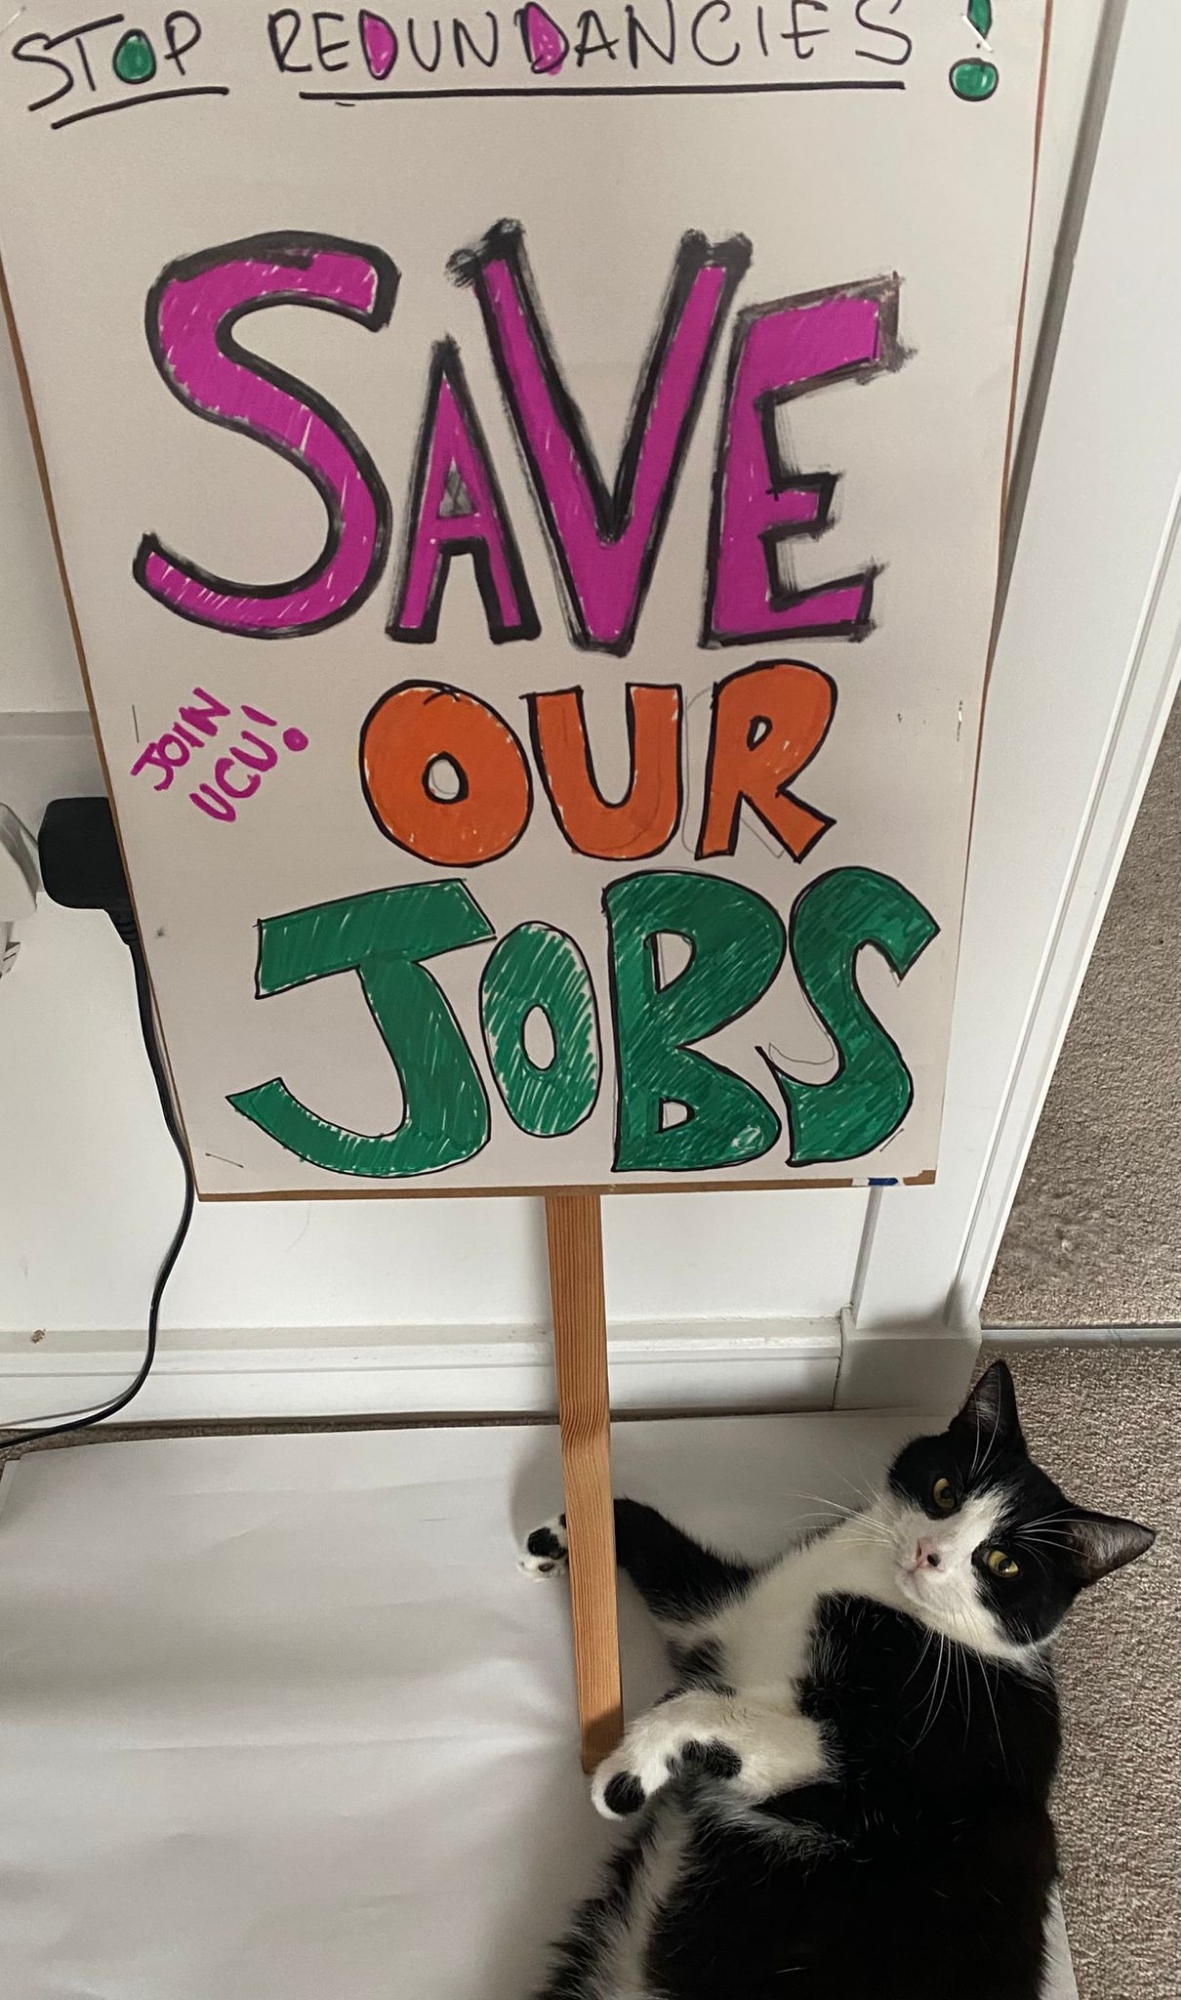 STOP REDUNDANCIES!
SAVE
JOIN
UCU!
OUR
JOBS